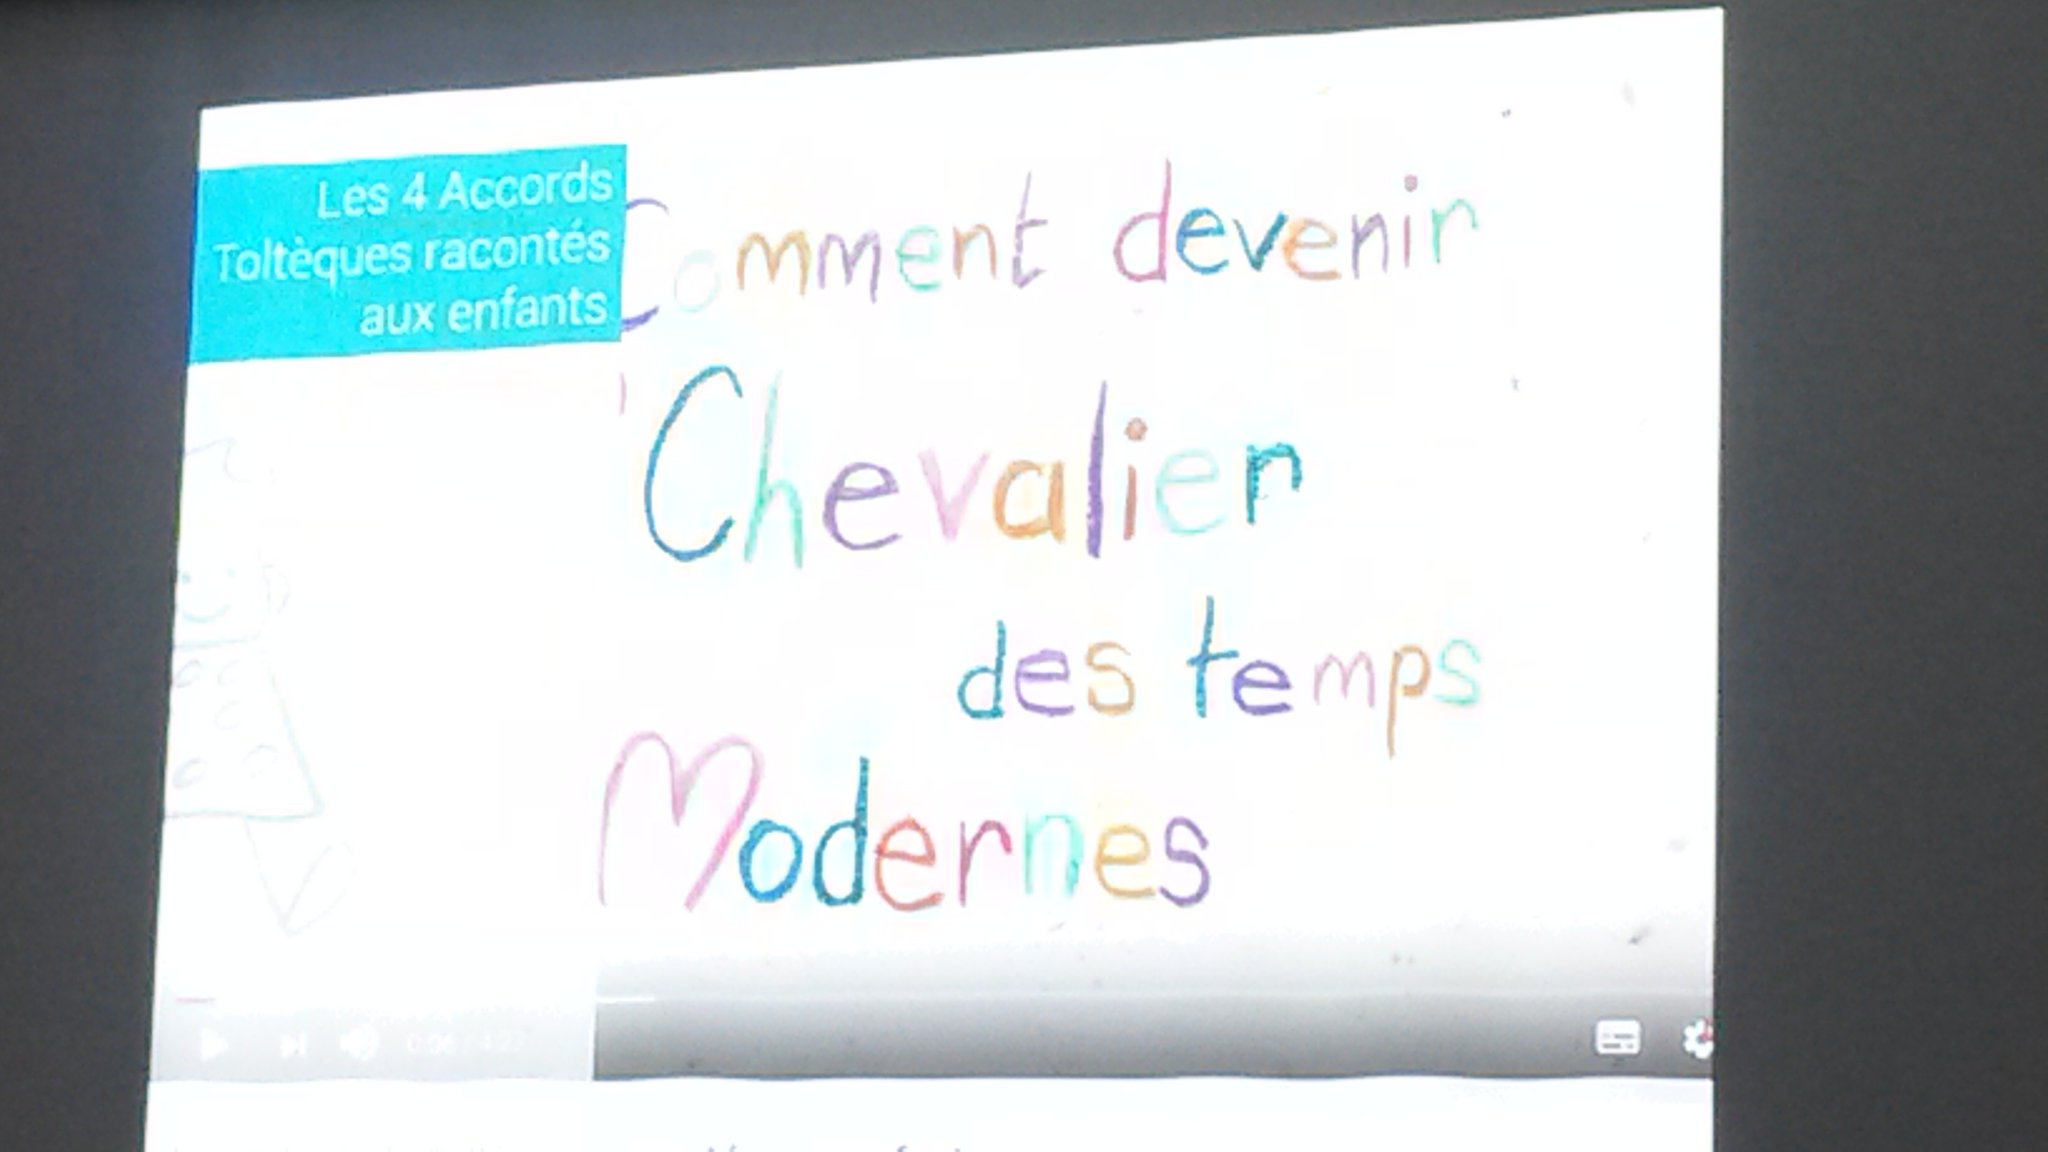 Les 4 Accords
Toltèques racontés
aux enfants
Comment devenir
Chevalier
des temps
Modernes